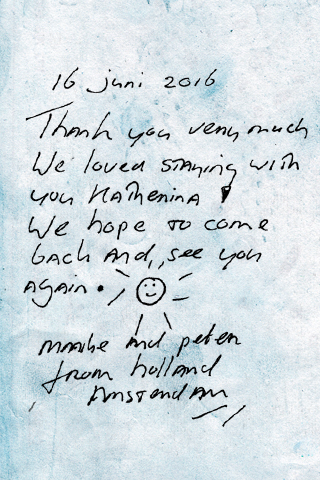 16 juni 2016
Thank you very much
We loved staying with
you Katherina !
We hope to come
back and, see you
again.
maaike and peter
from holland
Amsterdam